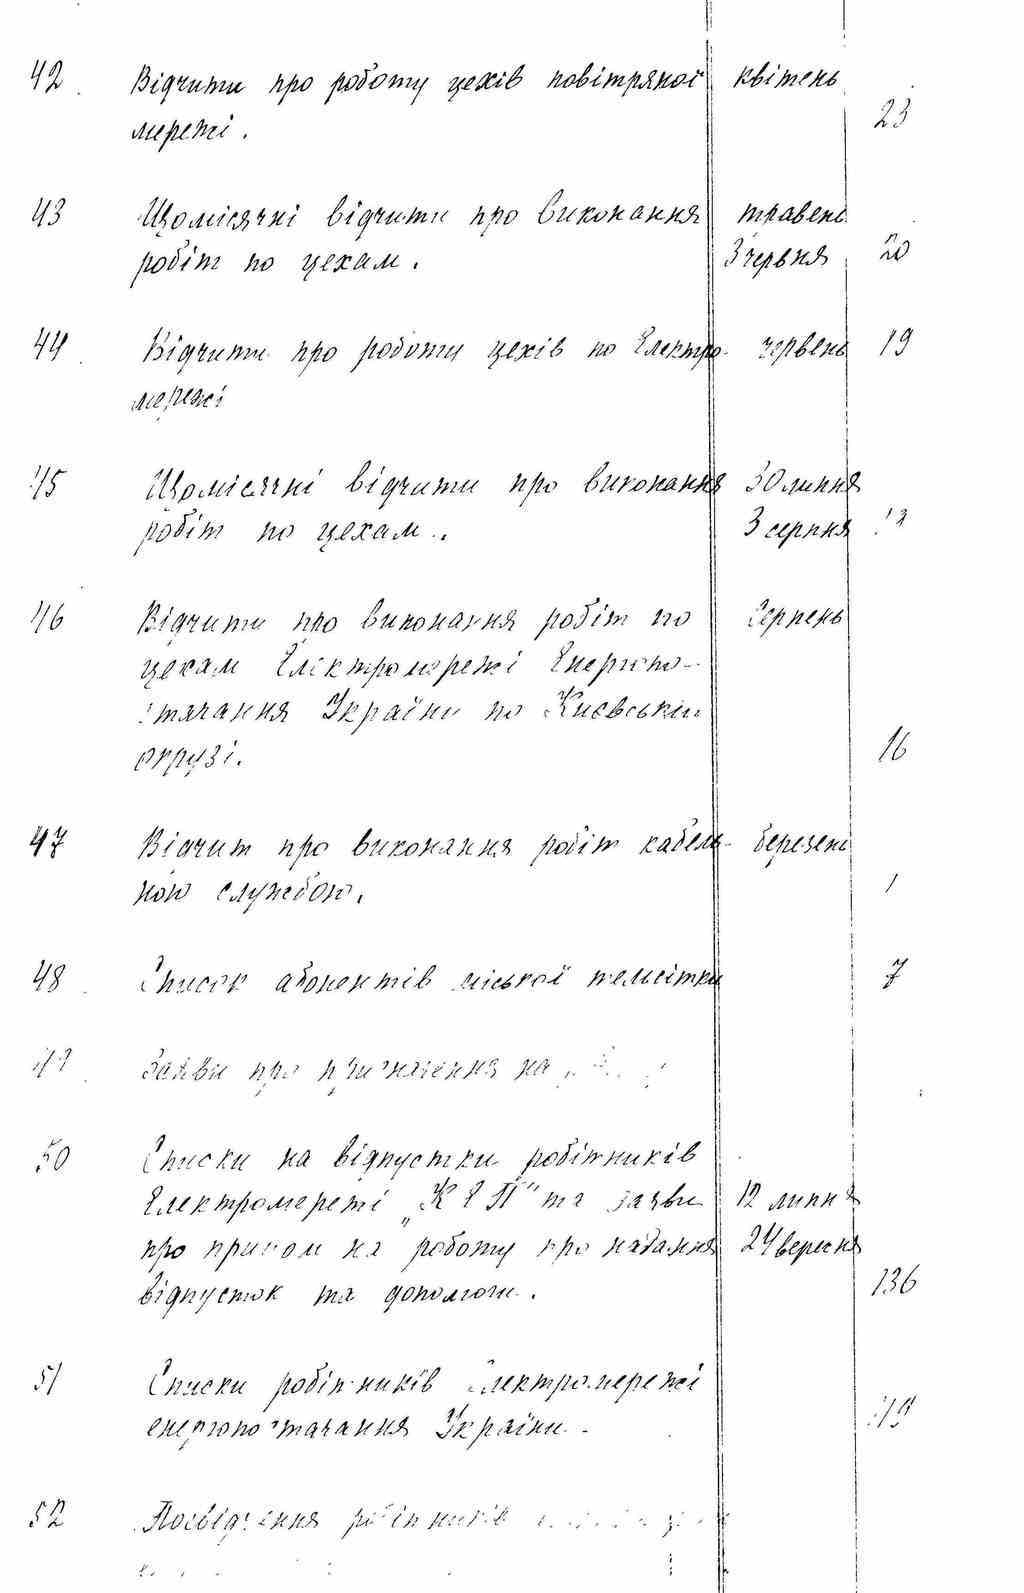 42 Відчити про роботу цехів повітряної квітень
мережі. 23
43 Щомісячні відчити про виконання травень
робіт по цехам. 3 червня 20
44 Відчити про роботи цехів по Електро- червень 19
мережі
45 Щомісячні відчити про виконання 30 липня
робіт по цехам. 3 серпня 13
46 Відчити про виконання робіт по Серпень
цехам Електромережі Енергопо-
стачання України по Києвській
окрузі. 16
47 Відчит про виконання робіт кабель- березень
ною службою. 1
48 Список абонентів міської телесітки 7
49 Заяви про призначення на
50 Списки на відпустки робітників
Електромережі „КЕП" та заяви 12 липня
про прийом на роботу про надання 24 вересня
відпусток та допомоги. 136
51 Списки робітників Електромережі
енергопостачання України. 19
52 Посвідчення робітників